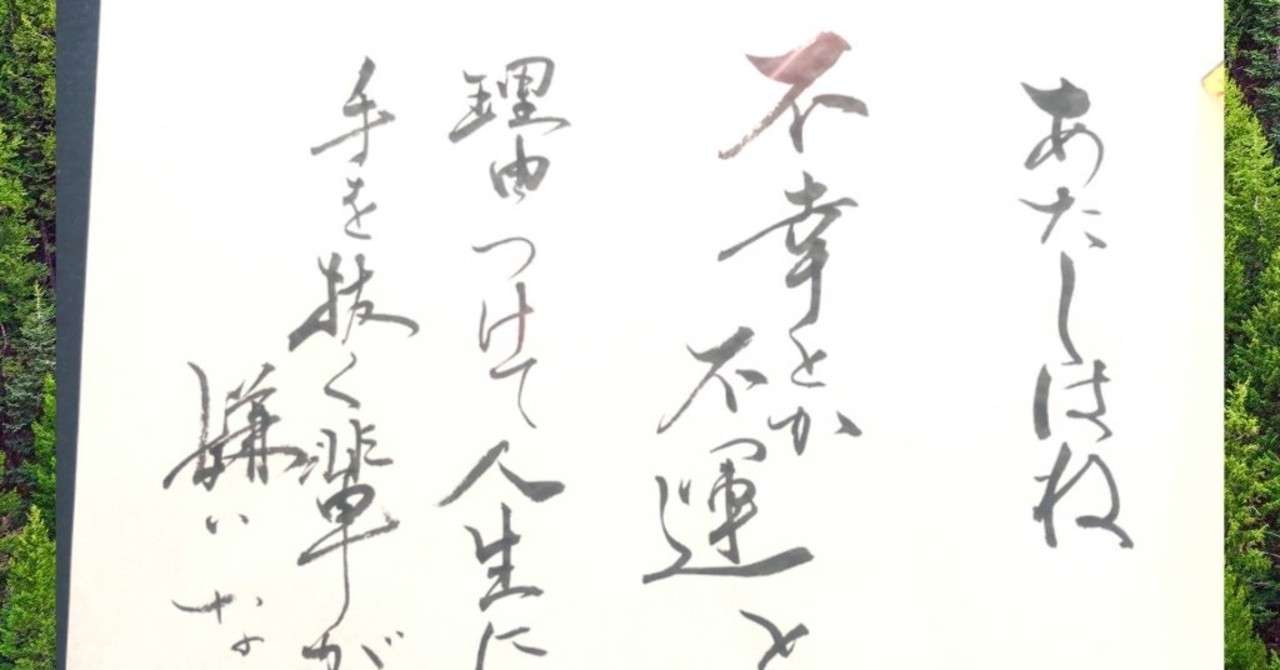 あたしはね
不幸とか
不運と
理由つけて人生に
手を抜く輩が
嫌いな